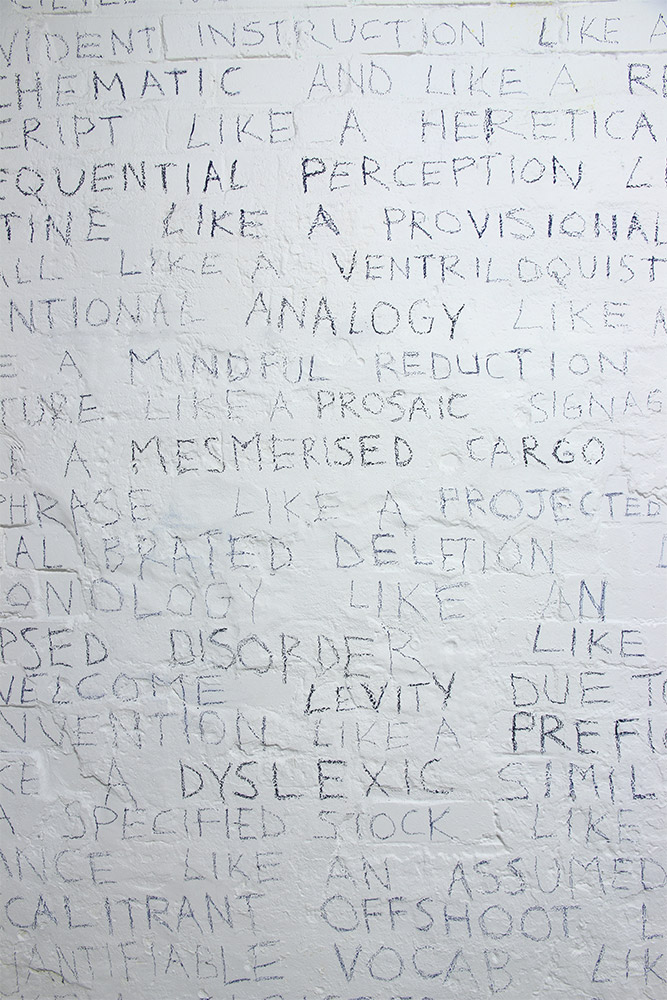 VIDENT INSTRUCTION LIKE A
CHEMATIC AND LIKE A RE
CRIPT LIKE A HERETICA
EQUENTIAL PERCEPTION LI
TINE LIKE A PROVISIONAL
ALL LIKE A VENTRILOQUIST
NTIONAL ANALOGY LIKE A
E A MINDFUL REDUCTION
TURE LIKE A PROSAIC SIGNAG
E A MESMERISED CARGO
PHRASE LIKE A PROJECTED
AL BRATED DELETION L
ONOLOGY LIKE AN
PSED DISORDER LIKE
WELCOME LEVITY DUE TO
NVENTION LIKE A PREFI
KE A DYSLEXIC SIMIL
A SPECIFIED STOCK LIKE
ANCE LIKE AN ASSUMED
CALITRANT OFFSHOOT L
UANTIFIABLE VOCAB LIK